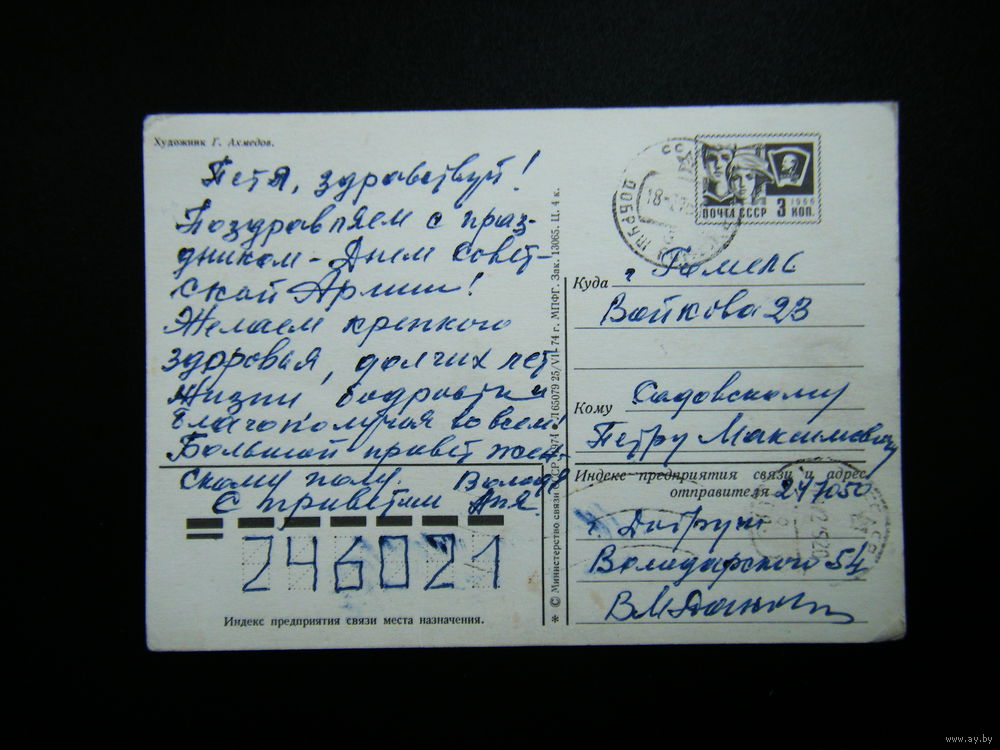 Художник Г. Ахмедов.
Петя, здравствуй!
Поздравляем с праз-
дником - Днем Совет-
ской Армии!
Желаем крепкого
здоровья, долгих лет
жизни, бодрости и
благополучия во всем!
Большой привет жен-
скому полу. Володя
С приветом Аня.
246021
Индекс предприятия связи места назначения.
* © Министерство связи СССР, 1974 Л 65079 25/VI-74 г. МПФГ. Зак. 13065. Ц. 4 к.
ПОЧТА СССР 3 КОП.
1966
Куда г. Гомель
Войкова 23
Кому Садовскому
Петру Максимовичу
Индекс предприятия связи и адрес
отправителя 247050
г. Добруш
Володарского 54
www.ay.by